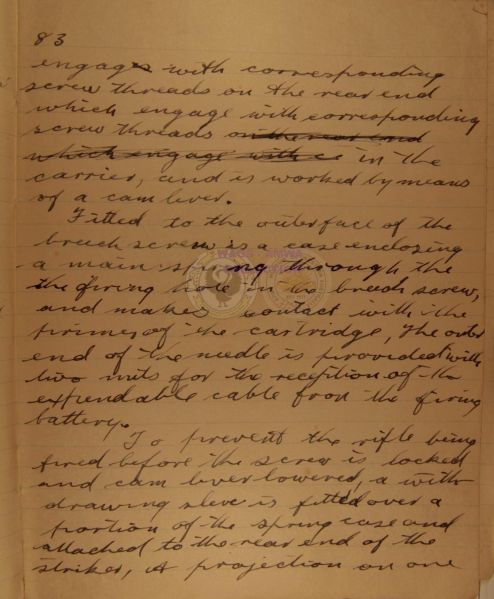 83
engages with corresponding
screw threads on the rear end
which engage with corresponding
screw threads on the rear end
which engage with c in the
carrier, and is worked by means
of a cam lever.
Fitted to the outer face of the
breech screw is a case enclosing
a main spring through the
the firing hole in the breech screw,
and makes contact with the
primer of the cartridge, The outer
end of the needle is provided with
two nuts for the reception of the
expendable cable from the firing
battery.
To prevent the rifle being
fired before the screw is locked
and cam lever lowered, a with-
drawing sleve is fitted over a
portion of the spring case and
attached to the rear end of the
striker, A projection on one